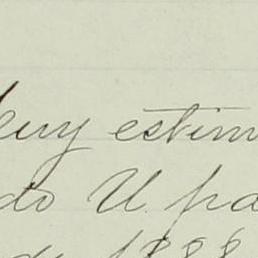 Muy estim
do U. pa
de 1888